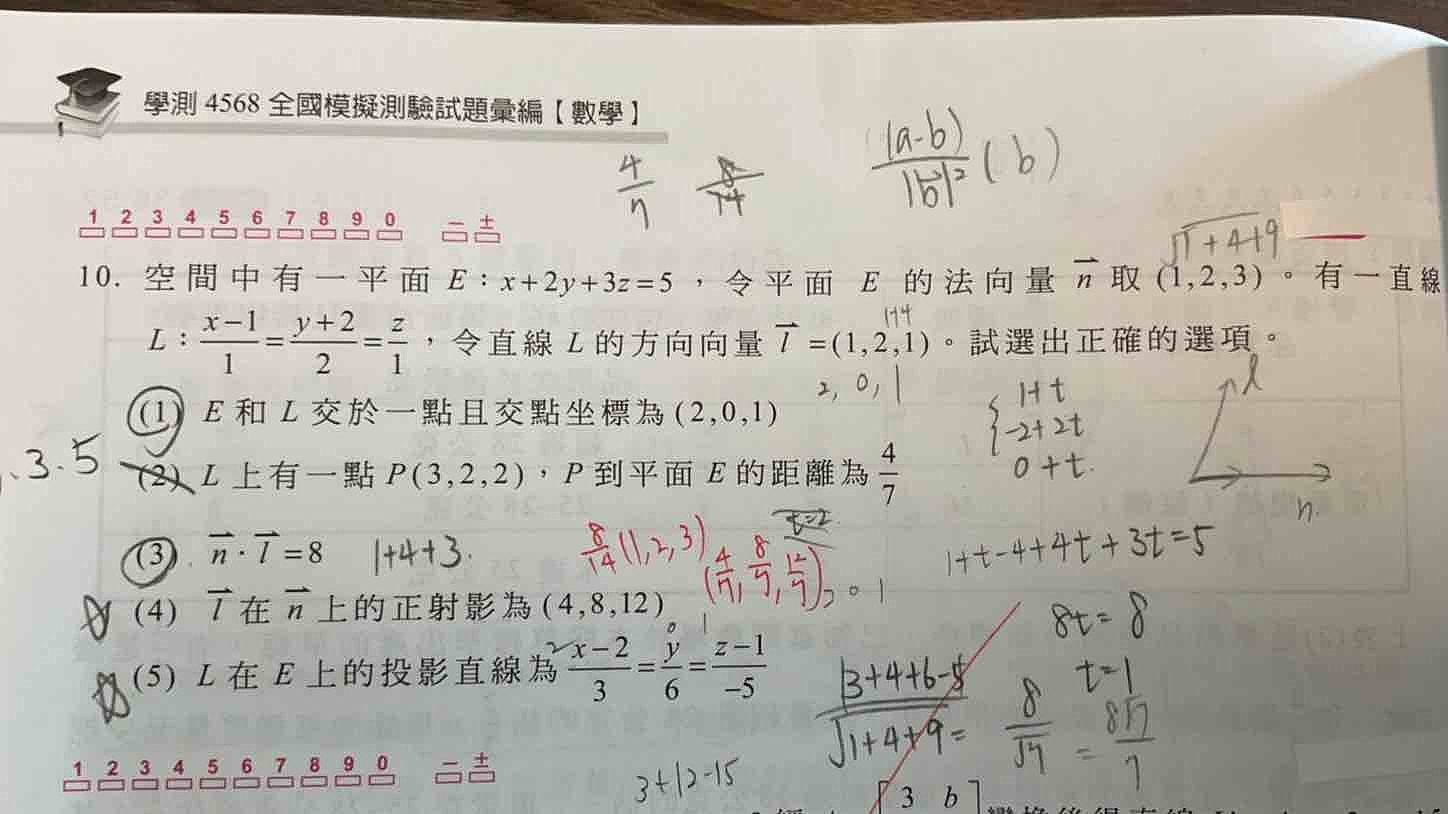 學測 4568 全國模擬測驗試題彙編【數學】
4/7 8/14 (a-b)/|b|² (b)
1 2 3 4 5 6 7 8 9 0 − ±
√1+4+9
10. 空間中有一平面 E：x+2y+3z=5，令平面 E 的法向量 n 取 (1,2,3)。有一直線
L：(x−1)/1=(y+2)/2=z/1，令直線 L 的方向向量 l=(1,2,1)。試選出正確的選項。
1+4
2, 0, 1
(1) E 和 L 交於一點且交點坐標為 (2,0,1)
1+t
-2+2t
0+t
l
n
3.5
(2) L 上有一點 P(3,2,2)，P 到平面 E 的距離為 4/7
t=2
(3) n·l=8
1+4+3.
8/14 (1,2,3)
(4/7, 8/7, 12/7)
1+t-4+4t+3t=5
(4) l 在 n 上的正射影為 (4,8,12)
2 0 1
8t=8
t=1
(5) L 在 E 上的投影直線為 (x−2)/3=y/6=(z−1)/−5
2 0 1
|3+4+6-5|/√1+4+9= 8/√7 = 8√7/7
1 2 3 4 5 6 7 8 9 0 − ±
3+12-15
3 b